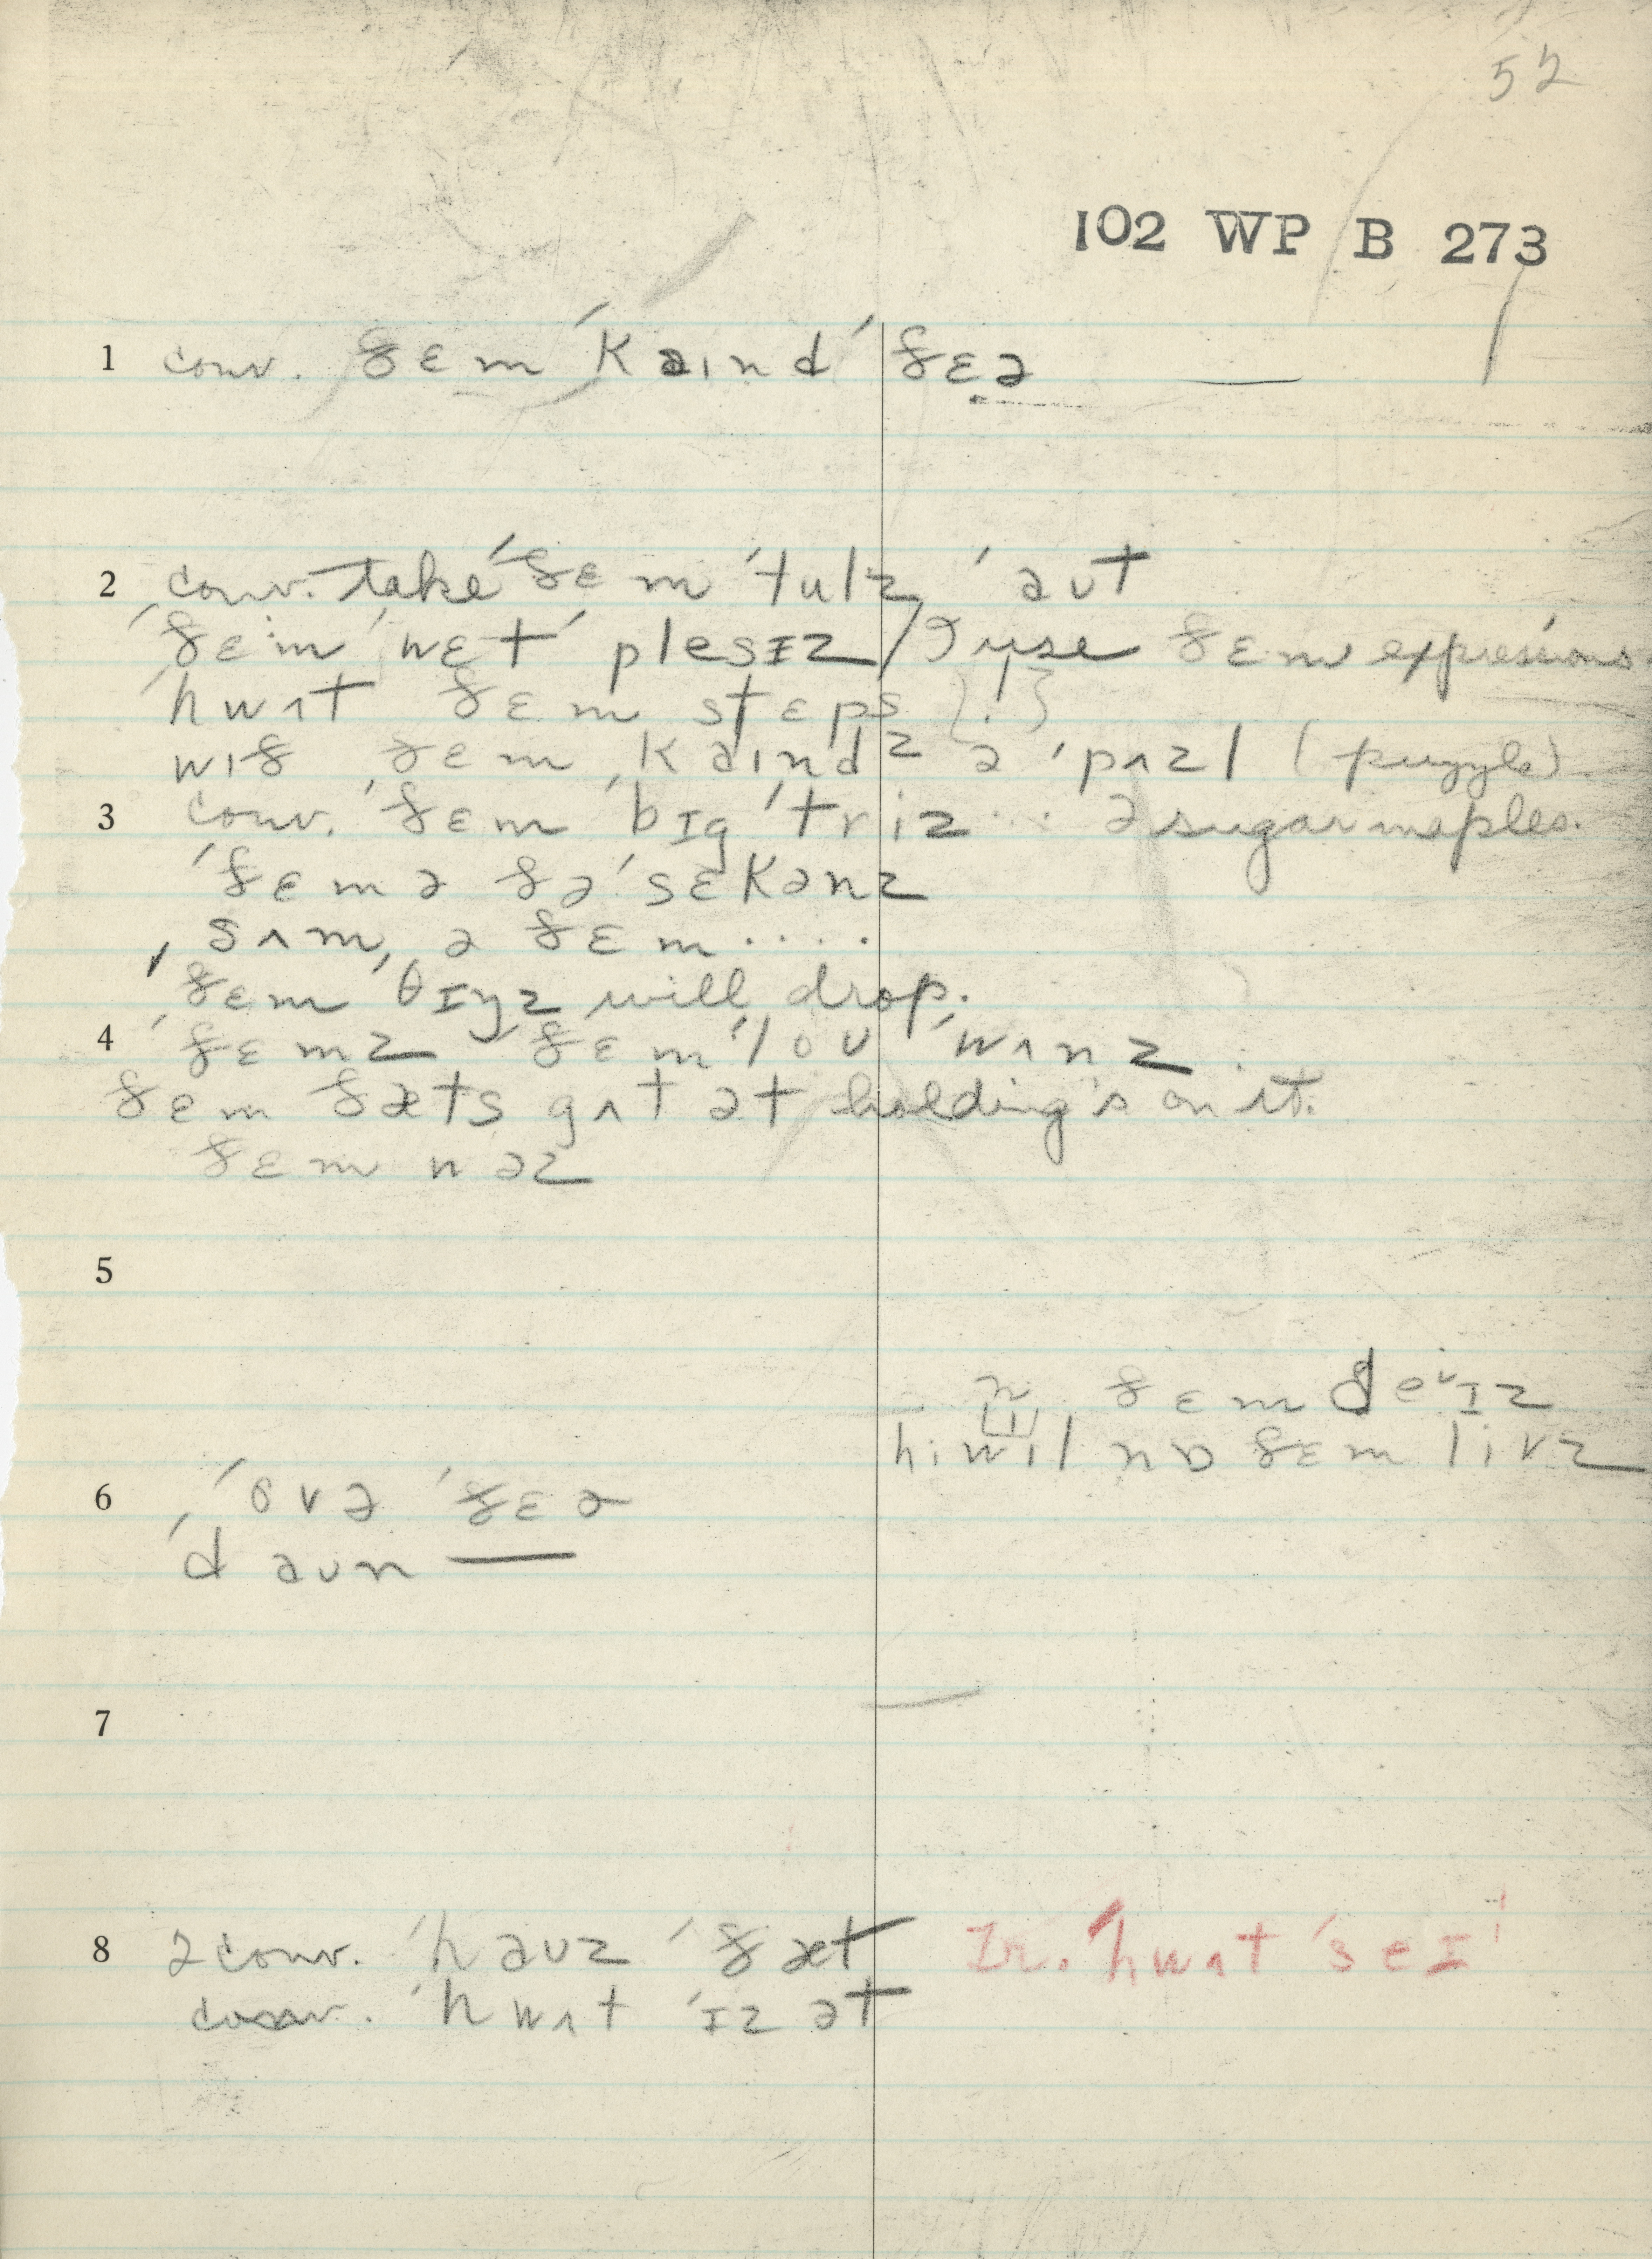 52
102 WP B 273
1 conv. ðɛm ˈkaɪnd ˈðɛə
2 conv. take ˈðɛm ˈtulz ˈaut
ˈðɛm ˈwɛt ˈplesɪz / I use ðɛm expressions
ˈhwʌt ðɛm stɛps {!}
wɪð ðɛm ˈkaɪndz ə ˈpʌzl (puzzle)
3 conv. ˈðɛm ˈbɪg ˈtriz ... ə sugar maples.
ˈðɛm ə ðə ˈsɛkənz
ˈsʌm ə ðɛm ....
ˈðɛm ˈθɪŋz will drop.
4 ˈðɛmz ˈðɛm ˈlou ˈwʌnz
ðɛm ðæts gʌt ət holding's on it.
ðɛm wəz
5
n ðɛm deɪz
hi wɪl nɒ ðɛm livz
6 ˈovə ˈðɛə
ˈdaun —
7
8 2 conv. ˈhauz ˈðæt Ir. ˈhwʌt ˈseɪ
conv. ˈhwʌt ˈɪz ət